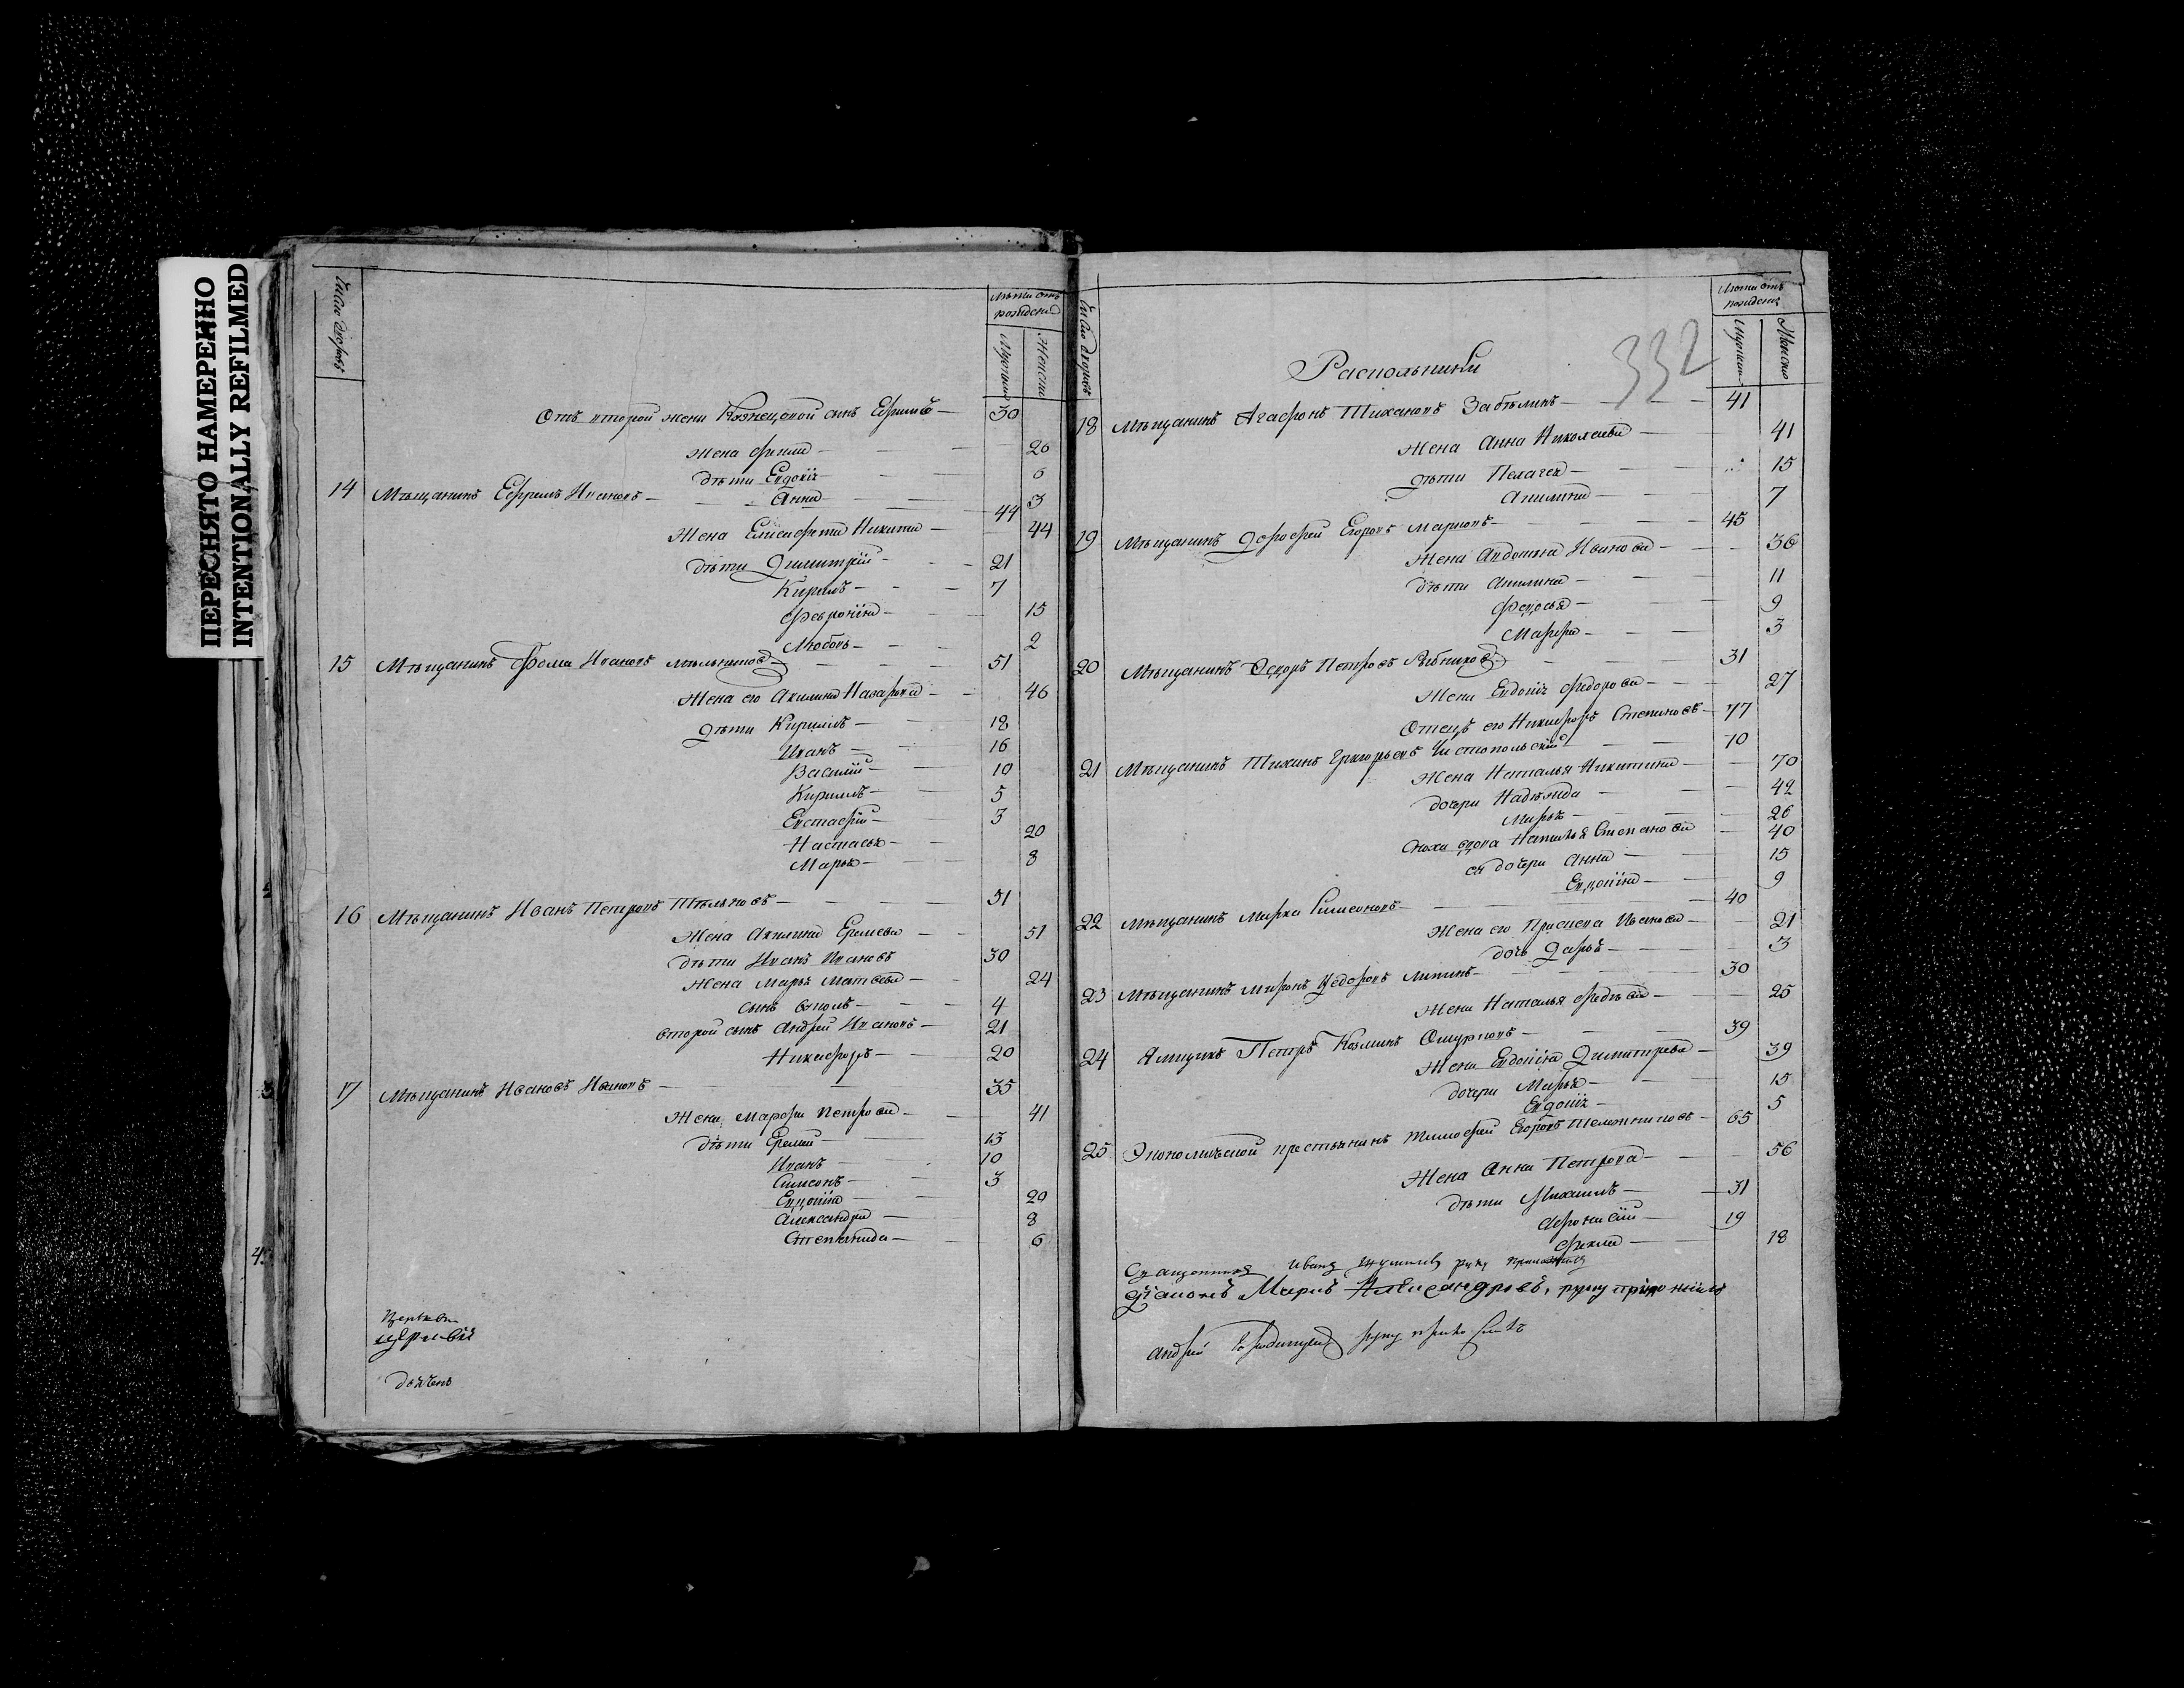 ПЕРЕСНЯТО НАМЕРЕННО
INTENTIONALLY REFILMED
Число дворовъ
Лѣта отъ рожденія
Мужеска
Женска
Отъ второй жены сынъ Ефримъ 30
Жена 26
дѣти Евдокія 6
Анна 3
14 Мѣщанинъ Ефремъ Ивановъ 44
Жена Елисафета Никити 44
дѣти Димитрій 21
Кирилъ 7
Феврониа 15
Любовь 2
15 Мѣщанинъ Фома Ивановъ Мельников 51
Жена его Акилина Назарова 46
дѣти Кириллъ 18
Иванъ 16
Василій 10
Кириллъ 5
Евстафій 3
Настасья 20
Марья 8
16 Мѣщанинъ Иванъ Петровъ 51
Жена Акилина Еремеева 51
дѣти Иванъ Ивановъ 30
Жена Марья Матвева 24
сынъ 4
второй сынъ Андрей Ивановъ 21
Никифоръ 20
17 Мѣщанинъ Ивановъ Ивановъ 35
Жена Марфа Петрова 41
дѣти Еремей 13
Иванъ 10
Симеонъ 3
Евдокія 20
Александра 8
Степанида 6
Церкви
церкви
3
4
Число дворовъ
Лѣта отъ рожденія
Мужеска
Женска
332
Раскольники
18 Мѣщанинъ Агафонъ Тихановъ Забѣлинъ 41
Жена Анна Николаева 41
дѣти Пелагея 15
Акилина 7
19 Мѣщанинъ Дорофей Егоровъ Марковъ 45
Жена Авдотья Иванова 36
дѣти Акилина 11
Федосья 9
Марфа 3
20 Мѣщанинъ Федоръ Петровъ Рыбников 31
Жена Евдокія Федорова 27
Отецъ его Никифоръ Степановъ 77
21 Мѣщанинъ Тиханъ Григорьевъ Чистопольскій 70
Жена Наталья Никитина 70
дочери Надѣжда 42
Марья 26
Сноха вдова Наталья Степанова 40
ея дочери Анна 15
Евдокия 9
22 Мѣщанинъ Марка Симеоновъ 40
Жена его Праскева Иванова 21
дочь Дарья 3
23 Мѣщанинъ Миронъ Федоровъ Липинъ 30
Жена Наталья 25
24 Ямщикъ Петръ Козминъ 39
Жена Евдокия Димитрева 39
дочери Марья 15
Евдокія 5
25 Экономической крестьянинъ Тимофей Егоровъ 65
Жена Анна Петрова 56
дѣти Михаилъ 31
Афонасій 19
Фекла 18
Священникъ Иванъ руку приложилъ
Діаконъ Маркъ Александровъ, руку приложилъ
Андрей руку приложилъ